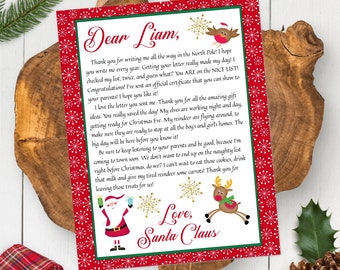 Dear Liam,
Thank you for writing me all the way in the North Pole! I hope
you write me every year. Getting your letter really made my day! I
checked my list, twice, and guess what? You ARE on the NICE LIST!
Congratulations! I've sent an official certificate that you can show to
your parents! I hope you like it!
I love the letter you sent me. Thank you for all the amazing gift
ideas. You really saved the day! My elves are working night and day,
getting ready for Christmas Eve. My reindeer are flying around, to
make sure they are ready to stop at all the boy's and girl's homes. The
big day will be here before you know it!
Be sure to keep listening to your parents and be good, because I'm
coming to town soon. We don't want to end up on the naughty list
right before Christmas, do we? I can't wait to eat those cookies, drink
that milk and give my tired reindeer some carrots! Thank you for
leaving these treats for us!
Love,
Santa Claus